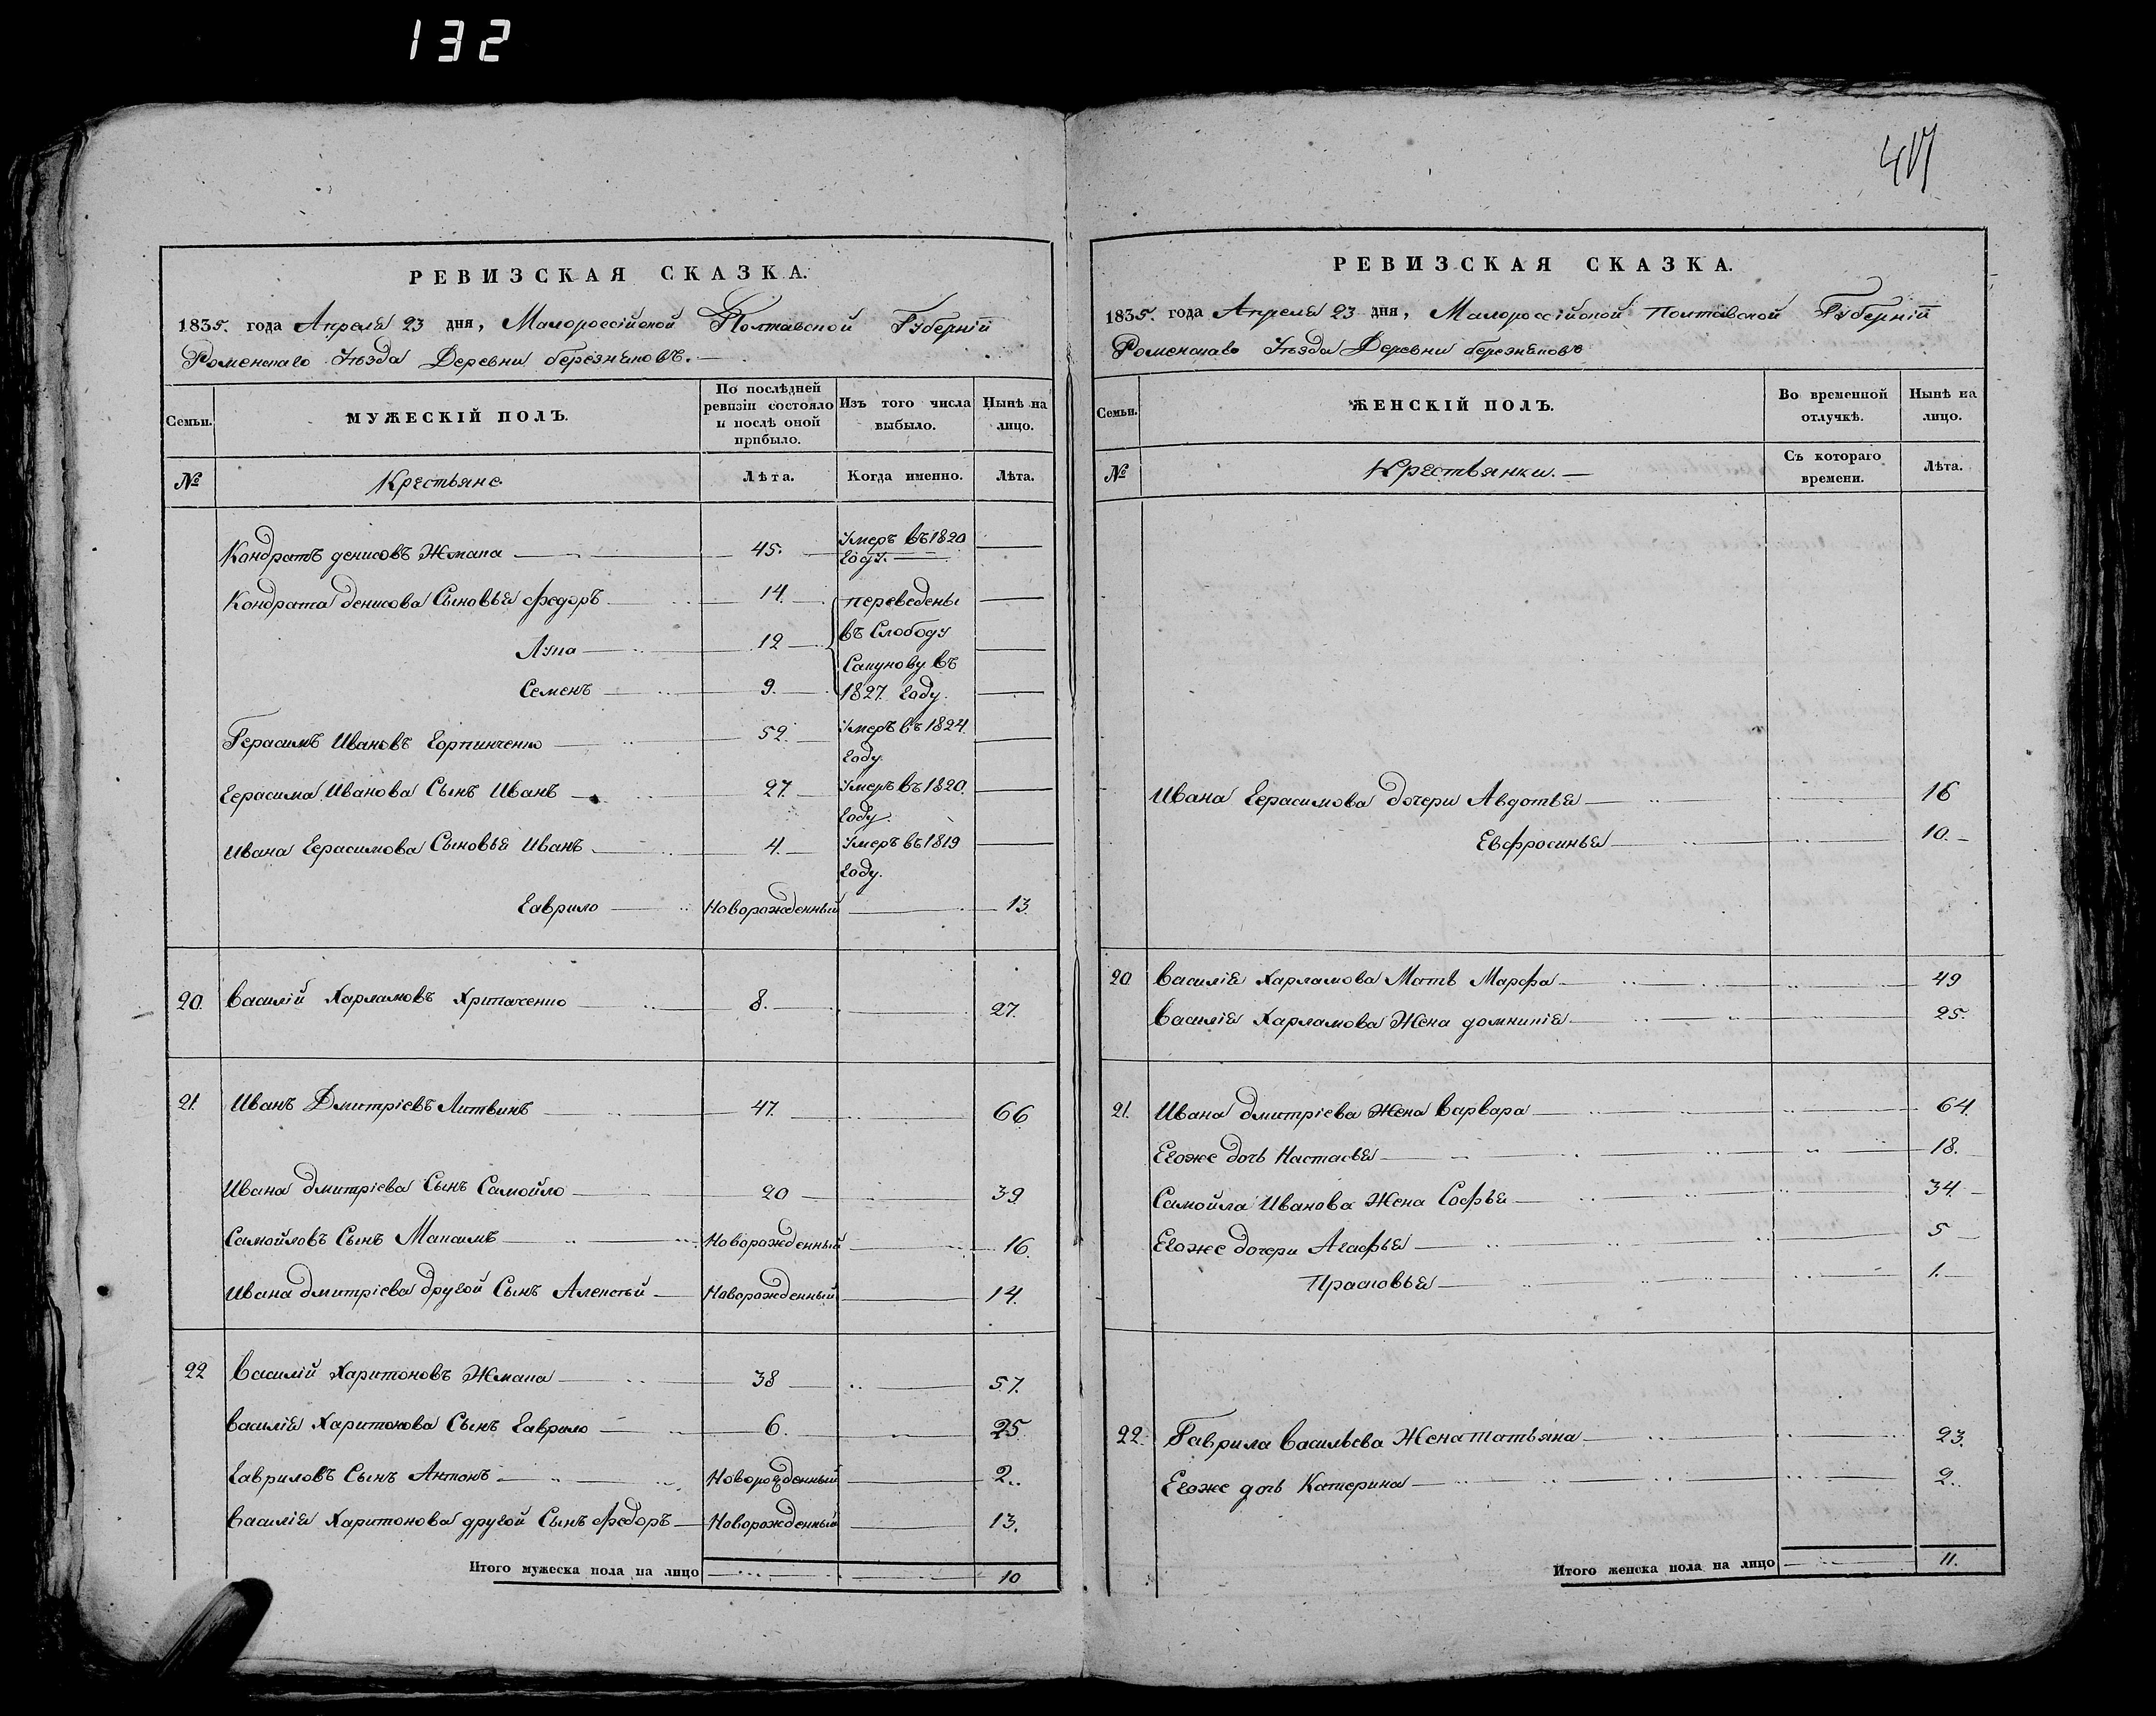 132
РЕВИЗСКАЯ СКАЗКА.
1835. года Апреля 23 дня, Малороссійской Полтавской Губерніи
Роменскаго Уѣзда Деревни березняковъ.
Семьи.
МУЖЕСКІЙ ПОЛЪ.
По послѣдней ревизіи состояло и послѣ оной прибыло.
Изъ того числа выбыло.
Нынѣ на лицо.
№ Крестьяне Лѣта. Когда именно. Лѣта.
Кондратъ денисовъ Жмака 45. Умеръ въ 1820
году.
Кондрата денисова Сыновья федоръ 14. переведены
Лука 12 въ Слободу
Сапунову въ
Семенъ 9. 1827. году.
Герасимъ Ивановъ Горпинченко 52. Умеръ въ 1824.
году.
Герасима Иванова Сынъ Иванъ 27. Умеръ въ 1820.
году.
Ивана Герасимова Сыновья Иванъ 4. Умеръ въ 1819
году.
Гаврило Новорожденный 13.
20. Василій Харламовъ 8. 27.
21. Иванъ Дмитріевъ Литвинъ 47. 66
Ивана дмитріева Сынъ Самойло 20 39
Самойловъ Сынъ Максимъ Новорожденный 16.
Ивана дмитріева другой Сынъ Алексѣй Новорожденный 14.
22 Василій Харитоновъ Жмака 38 57.
Василія Харитонова Сынъ Гаврило 6. 25
Гавриловъ Сынъ Антонъ Новорожденный 2..
Василія Харитонова другой Сынъ федоръ Новорожденный 13.
Итого мужеска пола на лицо 10
РЕВИЗСКАЯ СКАЗКА.
1835. года Апреля 23 дня, Малороссійской Полтавской Губерніи
Роменскаго Уѣзда Деревни березняковъ
Семьи.
ЖЕНСКІЙ ПОЛЪ.
Во временной отлучкѣ.
Нынѣ на лицо.
№ Крестьянки. Съ котораго времени. Лѣта.
Ивана Герасимова дочери Авдотья 16
Евфросинья 10.
20 Василія Харламова Мать Марфа 49
Василія Харламова Жена домникія 25.
21. Ивана дмитріева Жена Варвара 64.
Егоже дочь Настасья 18.
Самойла Иванова Жена Софья 34.
Егоже дочери Агафья 5
Прасковья 1.
22. Гаврила Васильева Жена татьяна 23.
Егоже дочь Катерина 2..
Итого женска пола на лицо 11.